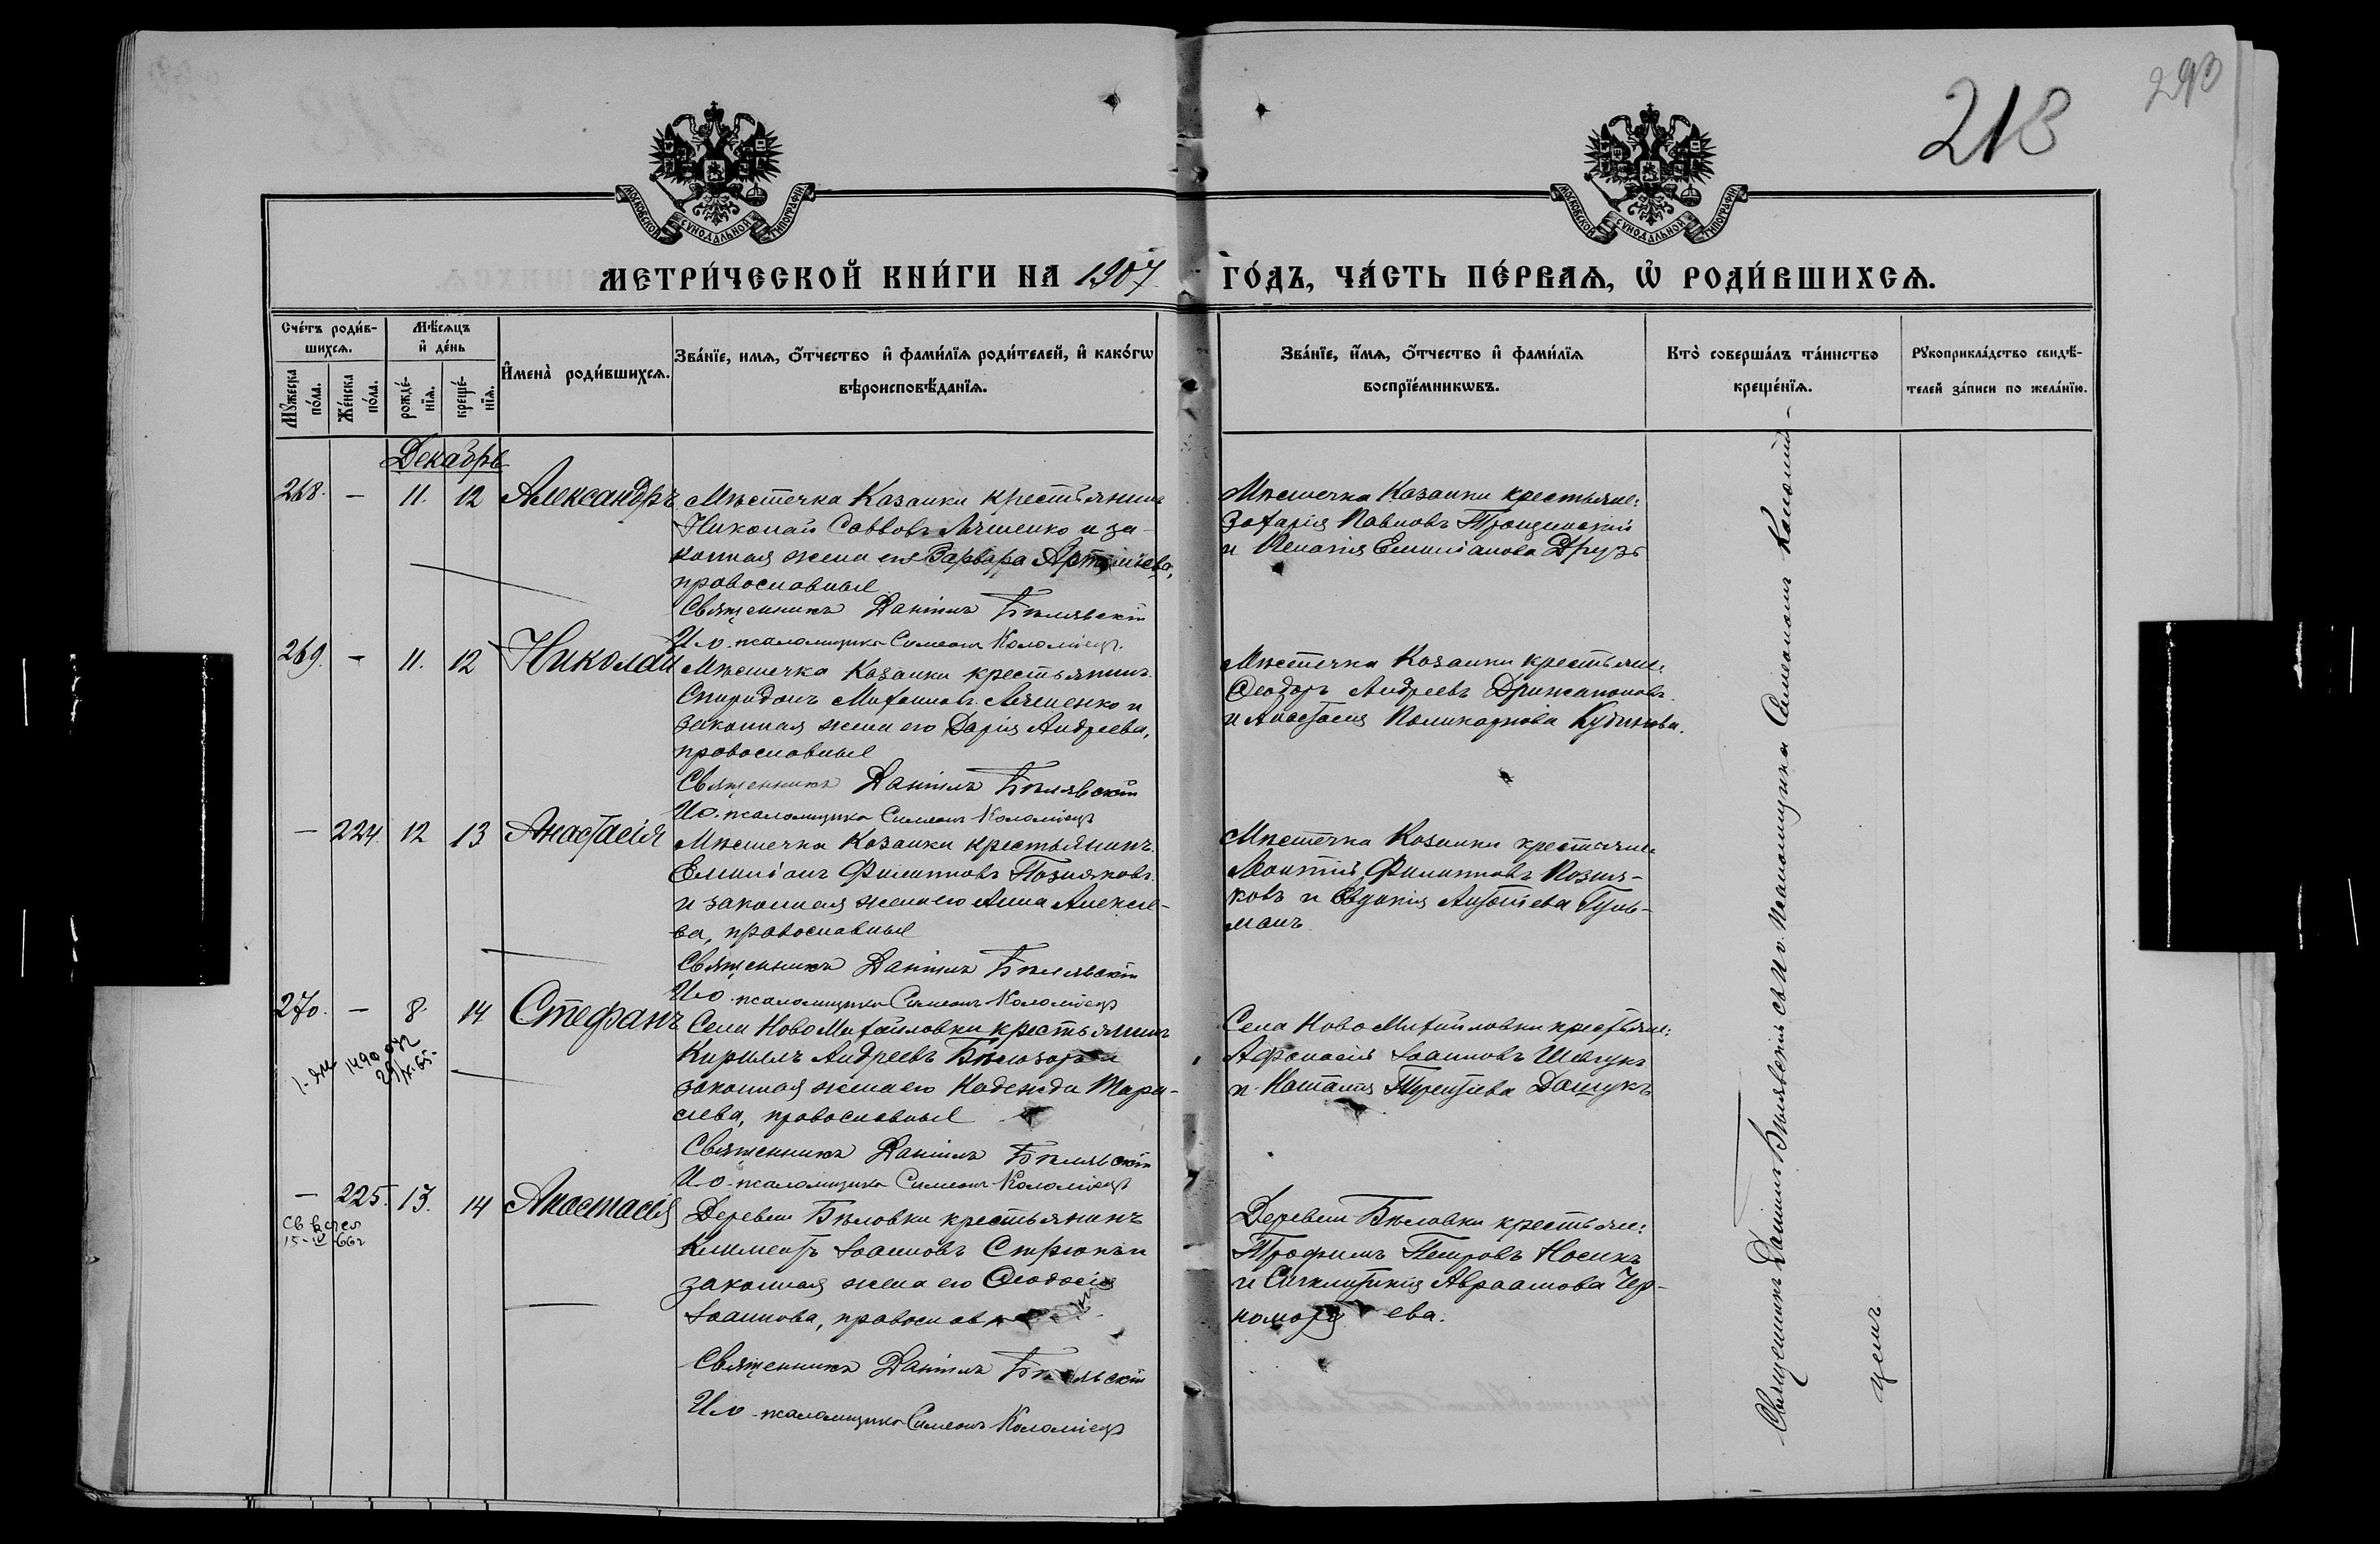 293
213
МОСКОВСКОЙ СѴНОДАЛЬНОЙ ТИПОГРАФІИ
МОСКОВСКОЙ СѴНОДАЛЬНОЙ ТИПОГРАФІИ
МЕТРИ́ЧЕСКОЙ КНИ́ГИ НА 1907 ГО́ДЪ, ЧА́СТЬ ПЕ́РВАѦ, Ѡ҆ РОДИ́ВШИХСѦ.
Сче́тъ роди́в-
шихсѧ.
Мѣ́сѧцъ
и҆ де́нь
Мꙋ́жеска
по́ла.
Же́нска
по́ла.
рожде́-
нїѧ.
креще́-
нїѧ.
И҆мена̀ роди́вшихсѧ.
Зва́нїе, имѧ, ѻ҆́тчество и҆ фами́лїѧ роди́телей, и҆ како́гѡ
вѣроисповѣ́данїѧ.
Зва́нїе, и҆́мѧ, ѻ҆́тчество и҆ фами́лїѧ
воспрїе́мникѡвъ.
Кто̀ соверша́лъ та́инство
креще́нїѧ.
Рꙋкоприкла́дство свидѣ́-
телей за́писи по жела́нїю.
Декабрь
268. — 11. 12 Александръ Мѣстечка Казанки крестьянинъ
Николай Саввовъ Ляшенко и за-
конная жена его Варвара Артеміева,
православные
Священникъ Даніилъ Бѣлявскій
И.о. псаломщика Симеонъ Коломіецъ
Мѣстечка Казанки крестьяне:
Захарія Павловъ Трощинскій
и Пелагія Емиліанова Друзь
269. — 11. 12 Николай Мѣстечка Казанки крестьянинъ
Спиридонъ Михаиловъ Ляшенко и
законная жена его Дарія Андреева,
православные
Священникъ Даніилъ Бѣлявскій
И.о. псаломщика Симеонъ Коломіецъ
Мѣстечка Казанки крестьяне:
Ѳеодоръ Андреевъ
и Анастасія Поликарпова
— 224. 12 13 Анастасія Мѣстечка Казанки крестьянинъ
Емиліанъ Филипповъ Позняковъ
и законная жена его Анна Алексѣе-
ва, православные
Священникъ Даніилъ Бѣлявскій
И.о. псаломщика Симеонъ Коломіецъ
Мѣстечка Казанки крестьяне
Леонтій Филипповъ Позня-
ковъ и Евдокія Антоніева Гуль-
манъ
270. — 8. 14 Стефанъ Села НовоМихайловки крестьянинъ
Кириллъ Андреевъ Бѣлозоръ и
законная жена его Надежда Тара-
сіева, православные
Священникъ Даніилъ Бѣлявскій
И.о. псаломщика Симеонъ Коломіецъ
Села НовоМихайловки крестьяне:
Афанасій Іоанновъ
и Наталія Терентіева Дашукъ
— 225. 13. 14 Анастасія Деревни Бѣловки крестьянинъ
15-IV-66г
Климентъ Іоанновъ Стрюкъ и
законная жена его Ѳеодосія
Іоаннова, православные
Священникъ Даніилъ Бѣлявскій
И.о. псаломщика Симеонъ Коломіецъ
Деревни Бѣловки крестьяне:
Трофимъ Петровъ Носикъ
и Синклитикія Авраамова Чер-
номор ева.
Священникъ Даніилъ Бѣлявскій съ И.о. псаломщика Симеономъ Коломій-
цемъ